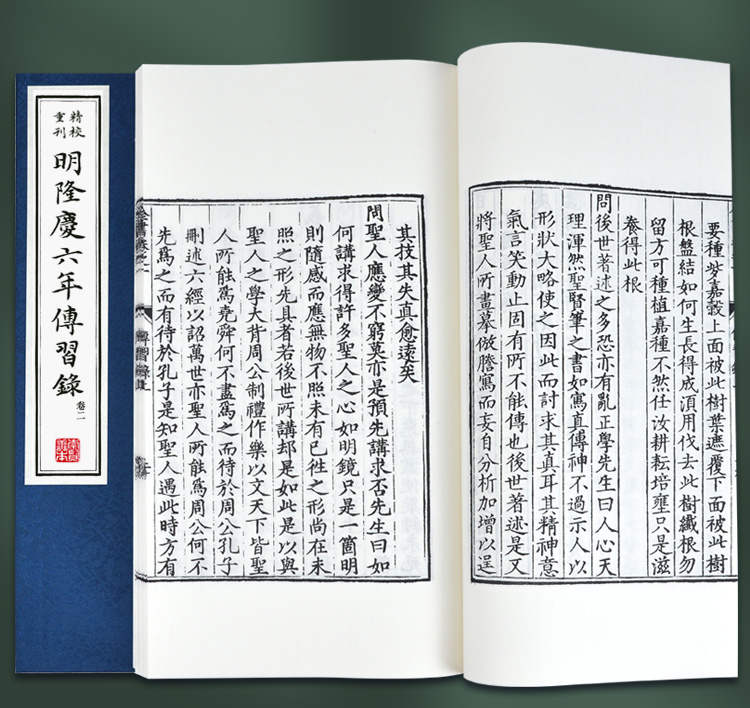 精校
重刊
明隆慶六年傳習錄
卷二
要種些嘉穀上面被此樹葉遮覆下面被此樹
根盤結如何生長得成須用伐去此樹纖根勿
留方可種植嘉種不然任汝耕耘培壅只是滋
養得此根
問後世著述之多恐亦有亂正學先生曰人心天
理渾然聖賢筆之書如寫真傳神不過示人以
形狀大略使之因此而討求其真耳其精神意
氣言笑動止固有所不能傳也後世著述是又
將聖人所畫摹倣謄寫而妄自分析加增以逞
其技其失真愈遠矣
問聖人應變不窮莫亦是預先講求否先生曰如
何講求得許多聖人之心如明鏡只是一箇明
則隨感而應無物不照未有已徃之形尚在未
照之形先具者若後世所講却是如此是以與
聖人之學大背周公制禮作樂以文天下皆聖
人所能爲堯舜何不盡爲之而待於周公孔子
刪述六經以詔萬世亦聖人所能爲周公何不
先爲之而有待於孔子是知聖人遇此時方有